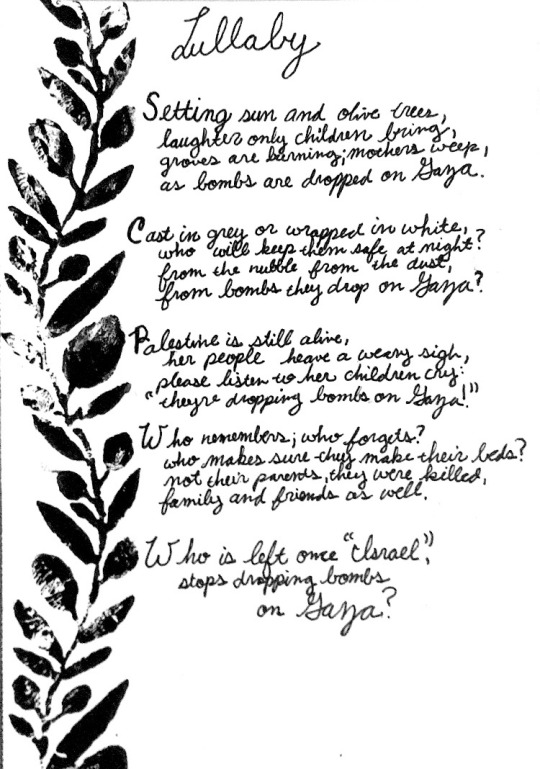 Lullaby
Setting sun and olive trees,
laughter only children bring,
groves are burning; mothers weep,
as bombs are dropped on Gaza.
Cast in grey or wrapped in white,
who will keep them safe at night?
from the rubble from the dust,
from bombs they drop on Gaza?
Palestine is still alive,
her people heave a weary sigh,
please listen to her children cry:
"they're dropping bombs on Gaza!"
Who remembers; who forgets?
who makes sure they make their beds?
not their parents, they were killed,
family and friends as well.
Who is left once "Israel",
stops dropping bombs
on Gaza?